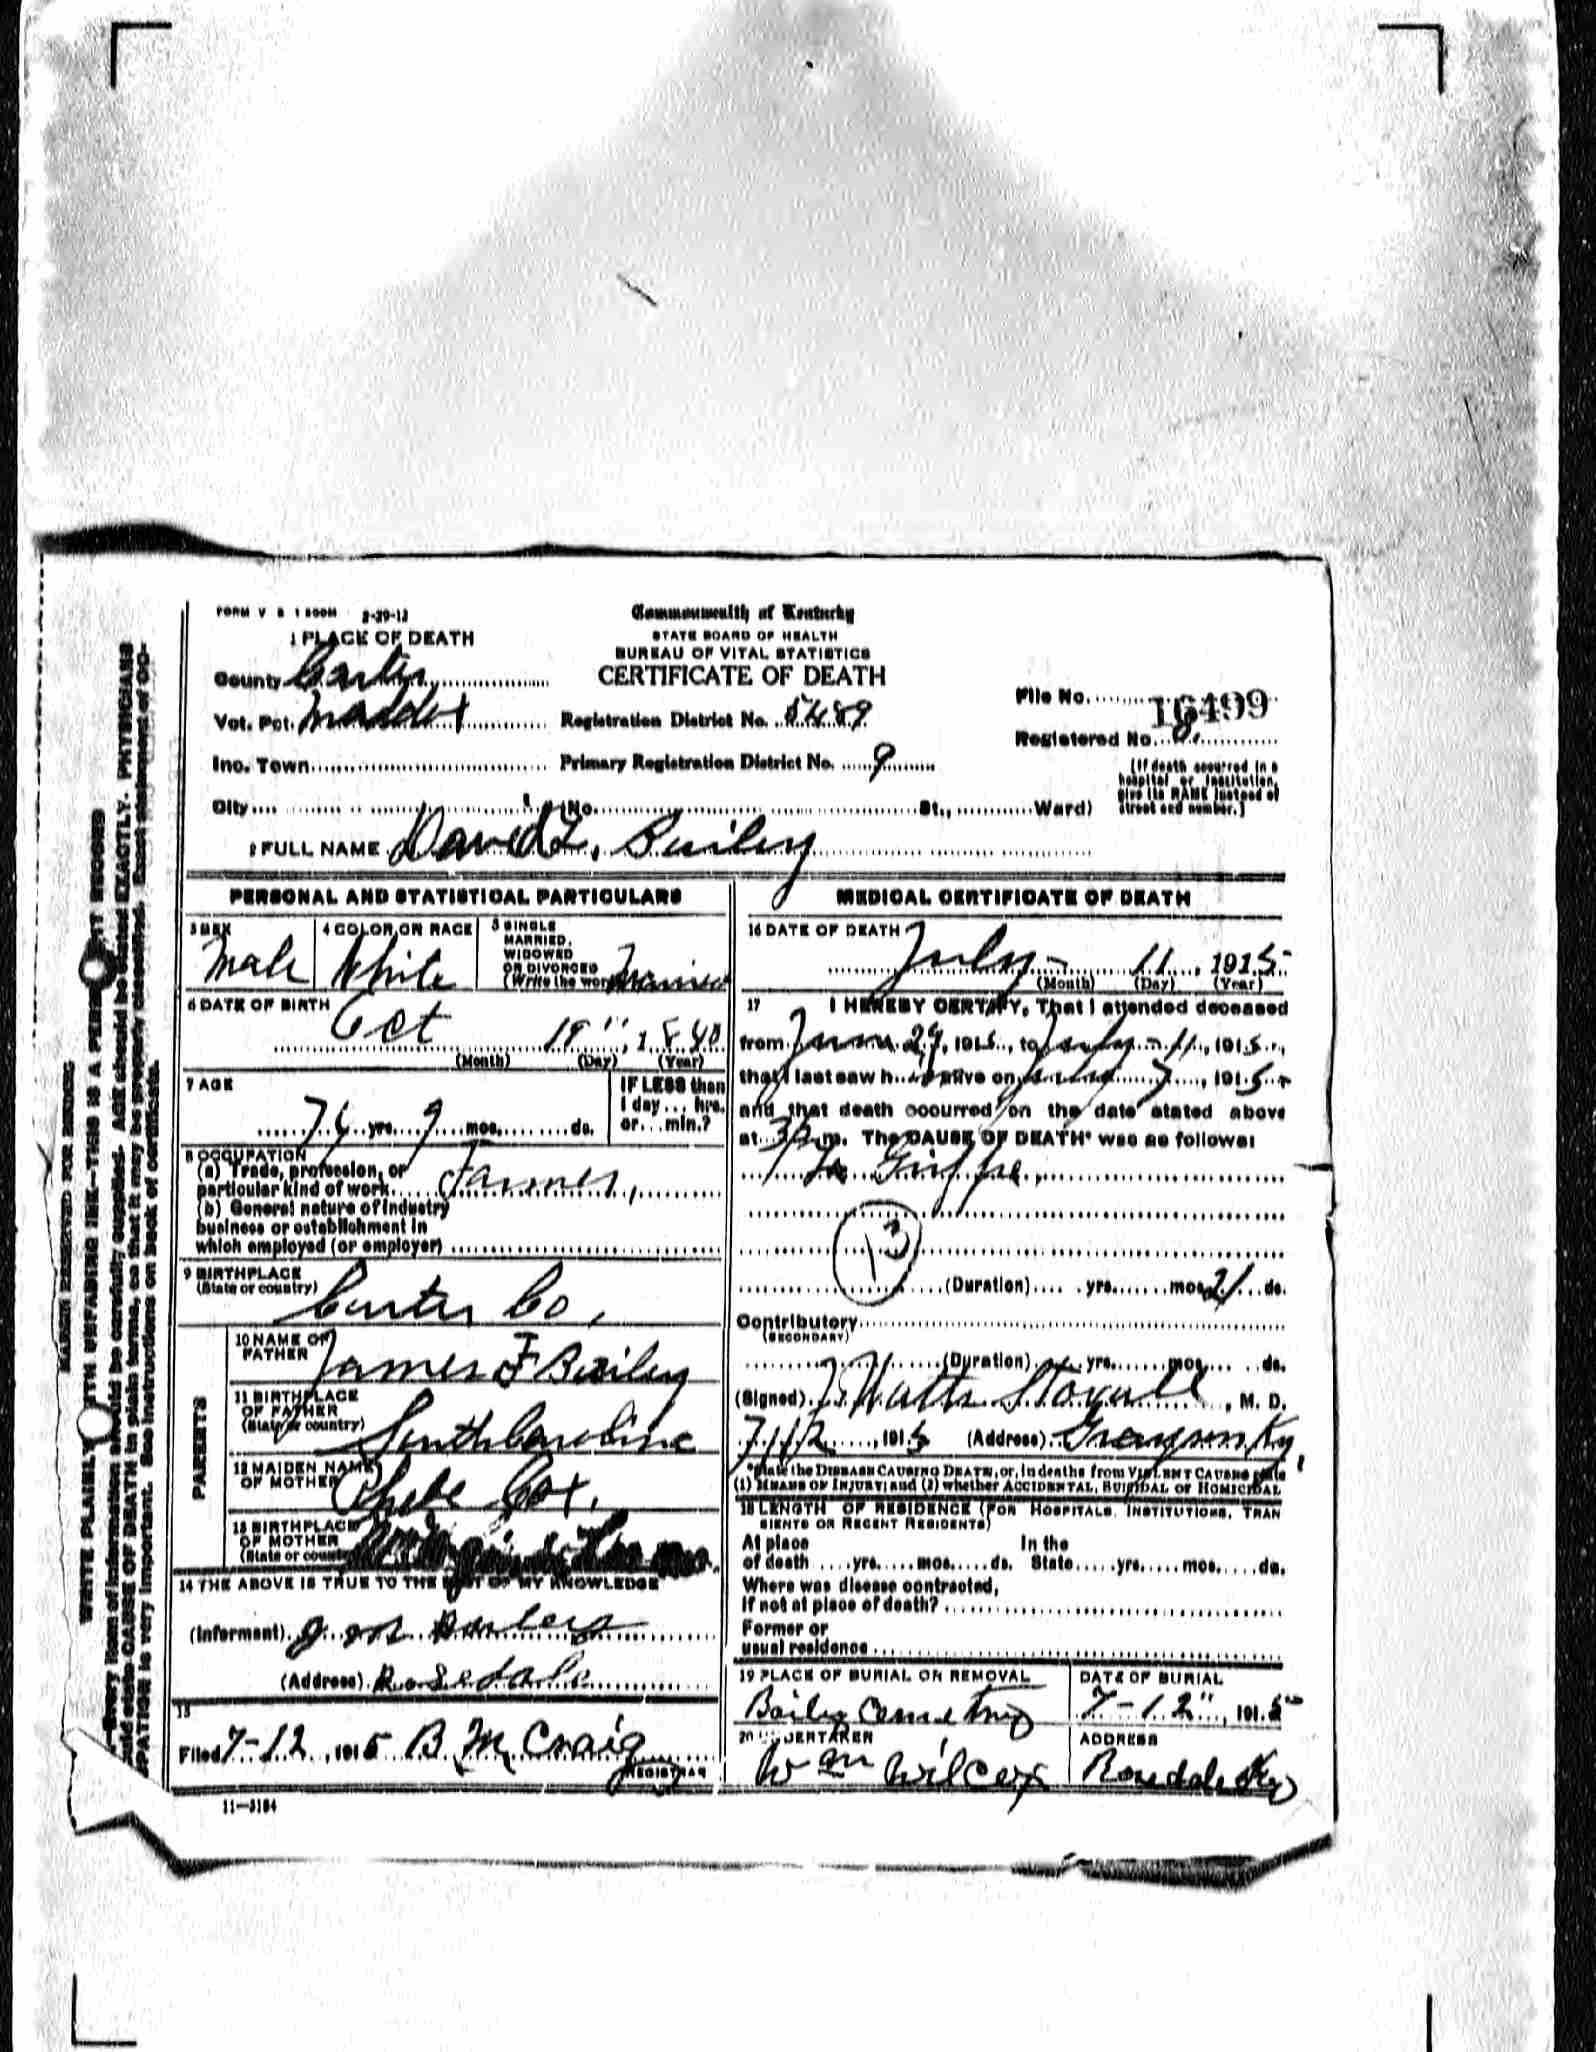 FORM V S 1 500M 2-29-12
Commonwealth of Kentucky
STATE BOARD OF HEALTH
BUREAU OF VITAL STATISTICS
CERTIFICATE OF DEATH
1 PLACE OF DEATH
County Carter
Vot. Pct. Maddox
Registration District No. 5489
Inc. Town
Primary Registration District No. 9
City (No. St., Ward)
File No. 16499
Registered No. 8.
[If death occurred in a
hospital or institution,
give its NAME instead of
street and number.]
2 FULL NAME David L. Bailey
PERSONAL AND STATISTICAL PARTICULARS
3 SEX
Male
4 COLOR OR RACE
White
5 SINGLE
MARRIED,
WIDOWED
OR DIVORCED
(Write the word) Married
6 DATE OF BIRTH
Oct 19", 1840
(Month) (Day) (Year)
7 AGE
74 yrs. 9 mos. ds.
IF LESS than
1 day ... hrs.
or ... min.?
8 OCCUPATION
(a) Trade, profession, or
particular kind of work. Farmer,
(b) General nature of industry
business or establishment in
which employed (or employer)
9 BIRTHPLACE
(State or country)
Carter Co,
PARENTS
10 NAME OF
FATHER
James F Bailey
11 BIRTHPLACE
OF FATHER
(State or country)
South Caroline
12 MAIDEN NAME
OF MOTHER
Phebe Cox,
13 BIRTHPLACE
OF MOTHER
(State or country)
14 THE ABOVE IS TRUE TO THE BEST OF MY KNOWLEDGE
(Informant) Bailey
(Address) Rosedale
15
Filed 7-12, 1915 B M Craig
REGISTRAR
11-3184
MEDICAL CERTIFICATE OF DEATH
16 DATE OF DEATH
July - 11, 1915
(Month) (Day) (Year)
17 I HEREBY CERTIFY, That I attended deceased
from June 29, 1915, to July - 11, 1915,
that I last saw him alive on July 7, 1915
and that death occurred on the date stated above
at 3 m. The CAUSE OF DEATH* was as follows:
La Grippe,
13
(Duration) yrs. mos. 21 ds.
Contributory
(SECONDARY)
(Duration) yrs. mos. ds.
(Signed) J Watts Stovall, M. D.
7/12, 1915 (Address) Grayson Ky,
*State the DISEASE CAUSING DEATH, or, in deaths from VIOLENT CAUSES state
(1) MEANS OF INJURY; and (2) whether ACCIDENTAL, SUICIDAL or HOMICIDAL
18 LENGTH OF RESIDENCE (FOR HOSPITALS, INSTITUTIONS, TRAN
SIENTS OR RECENT RESIDENTS)
At place In the
of death yrs. mos. ds. State yrs. mos. ds.
Where was disease contracted,
if not at place of death?
Former or
usual residence
19 PLACE OF BURIAL OR REMOVAL
Bailey Cemetry
DATE OF BURIAL
7-12", 1915
20 UNDERTAKER
Wm Wilcox
ADDRESS
Rosedale Ky
MARGIN RESERVED FOR BINDING
WRITE PLAINLY WITH UNFADING INK—THIS IS A PERMANENT RECORD
Every item of information should be carefully supplied. AGE should be stated EXACTLY. PHYSICIANS
should state CAUSE OF DEATH in plain terms, so that it may be properly classified. Exact statement of OC-
CUPATION is very important. See instructions on back of certificate.